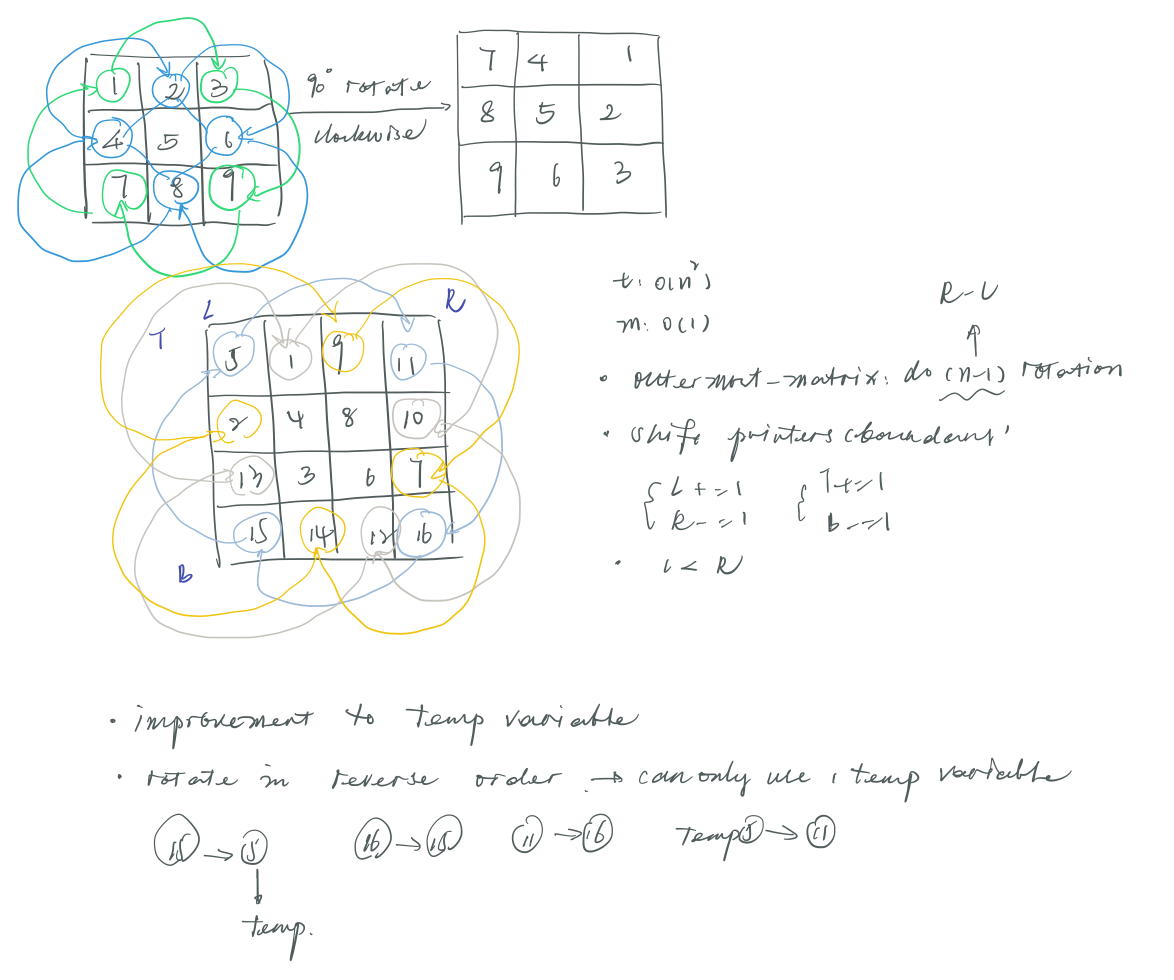 1 2 3
4 5 6
7 8 9
90° rotate
clockwise
7 4 1
8 5 2
9 6 3
t: O(n²)
m: O(1)
R-L
T L R
B
5 1 9 11
2 4 8 10
13 3 6 7
15 14 12 16
• outermost-matrix: do (n-1) rotation
• shift pointers (boundary)
{ L+=1 { T+=1
R-=1 b-=1
• L < R
• improvement to temp variable
• rotate in reverse order → can only use 1 temp variable
15 → 5 16 → 15 11 → 16 Temp 5 → 11
↓
temp.